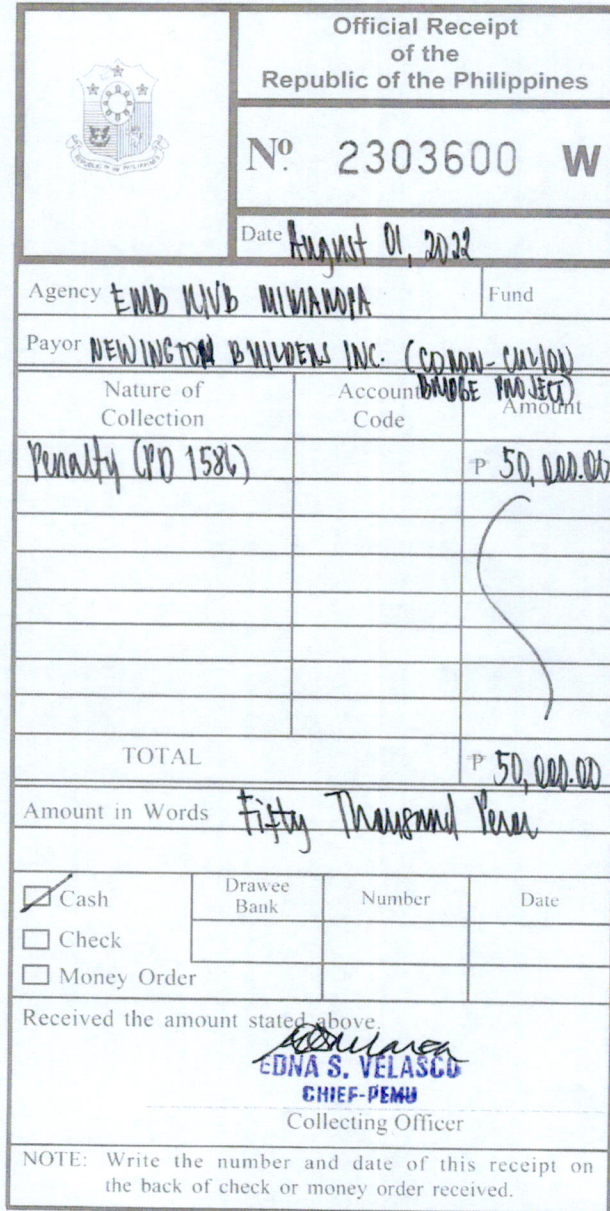 Official Receipt
of the
Republic of the Philippines
REPUBLIC OF THE PHILIPPINES
Nº 2303600 W
Date August 01, 2022
Agency EMB MIMAROPA
Fund
Payor NEWINGTON BUILDERS INC. (CORON-CULION
BRIDGE PROJECT)
Nature of Collection
Account Code
Amount
Penalty (PD 1586) ₱ 50,000.00
TOTAL ₱ 50,000.00
Amount in Words Fifty Thousand Pesos
Cash
Drawee Bank
Number
Date
Check
Money Order
Received the amount stated above.
EDNA S. VELASCO
CHIEF-PEMU
Collecting Officer
NOTE: Write the number and date of this receipt on
the back of check or money order received.